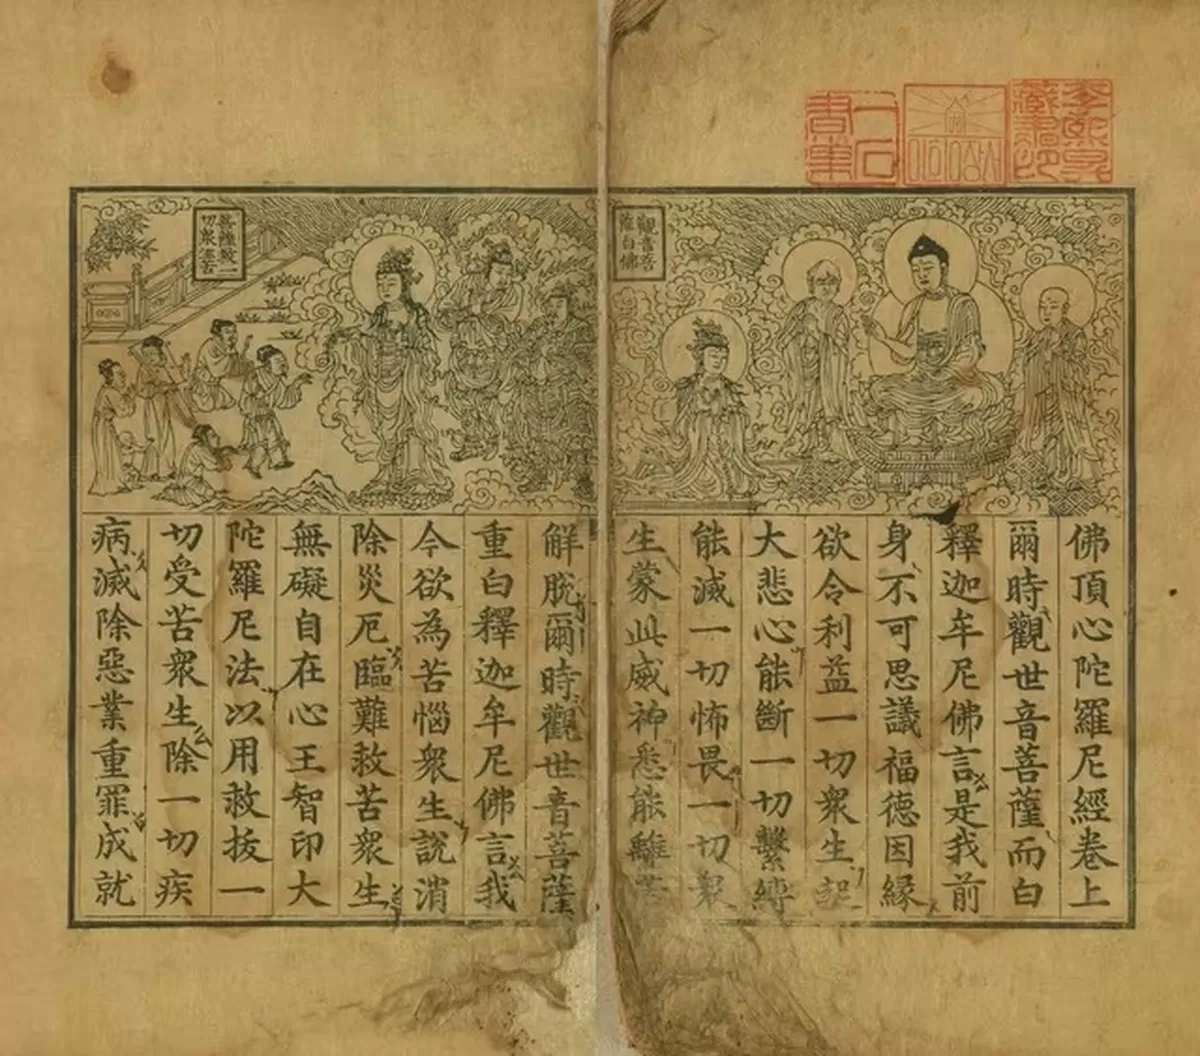 藏書印
一石
觀音菩
薩白佛
佛頂心陀羅尼經卷上
爾時觀世音菩薩而白
釋迦牟尼佛言是我前
身不可思議福德因緣
欲令利益一切衆生起
大悲心能斷一切繫縛
能滅一切怖畏一切衆
生蒙此威神悉能離苦
菩薩救一
切衆生苦
解脫爾時觀世音菩薩
重白釋迦牟尼佛言我
今欲為苦惱衆生說消
除災厄臨難救苦衆生
無礙自在心王智印大
陀羅尼法以用救拔一
切受苦衆生除一切疾
病滅除惡業重罪成就